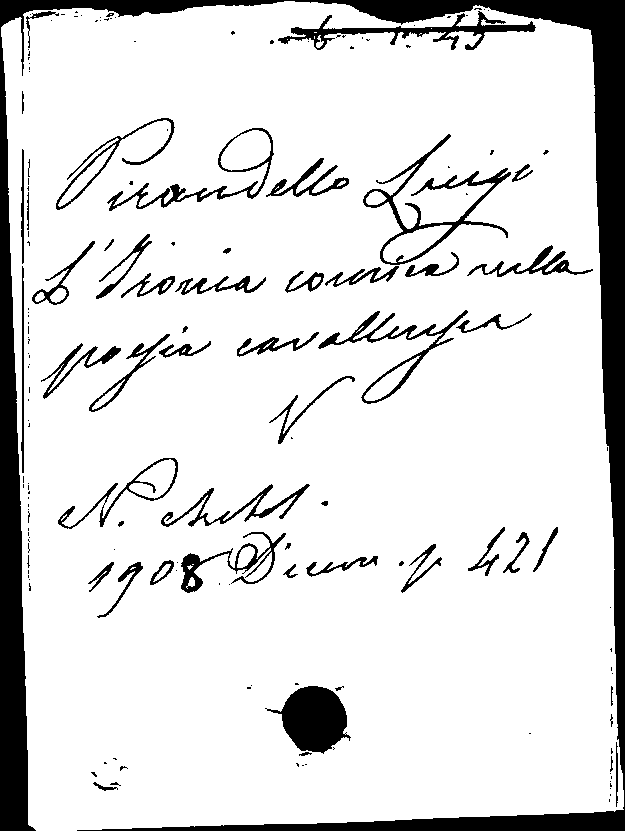 6. 1. 45
Pirandello Luigi
L'Ironia comica nella
poesia cavalleresca
V
N.
1908 Dicem. p 421